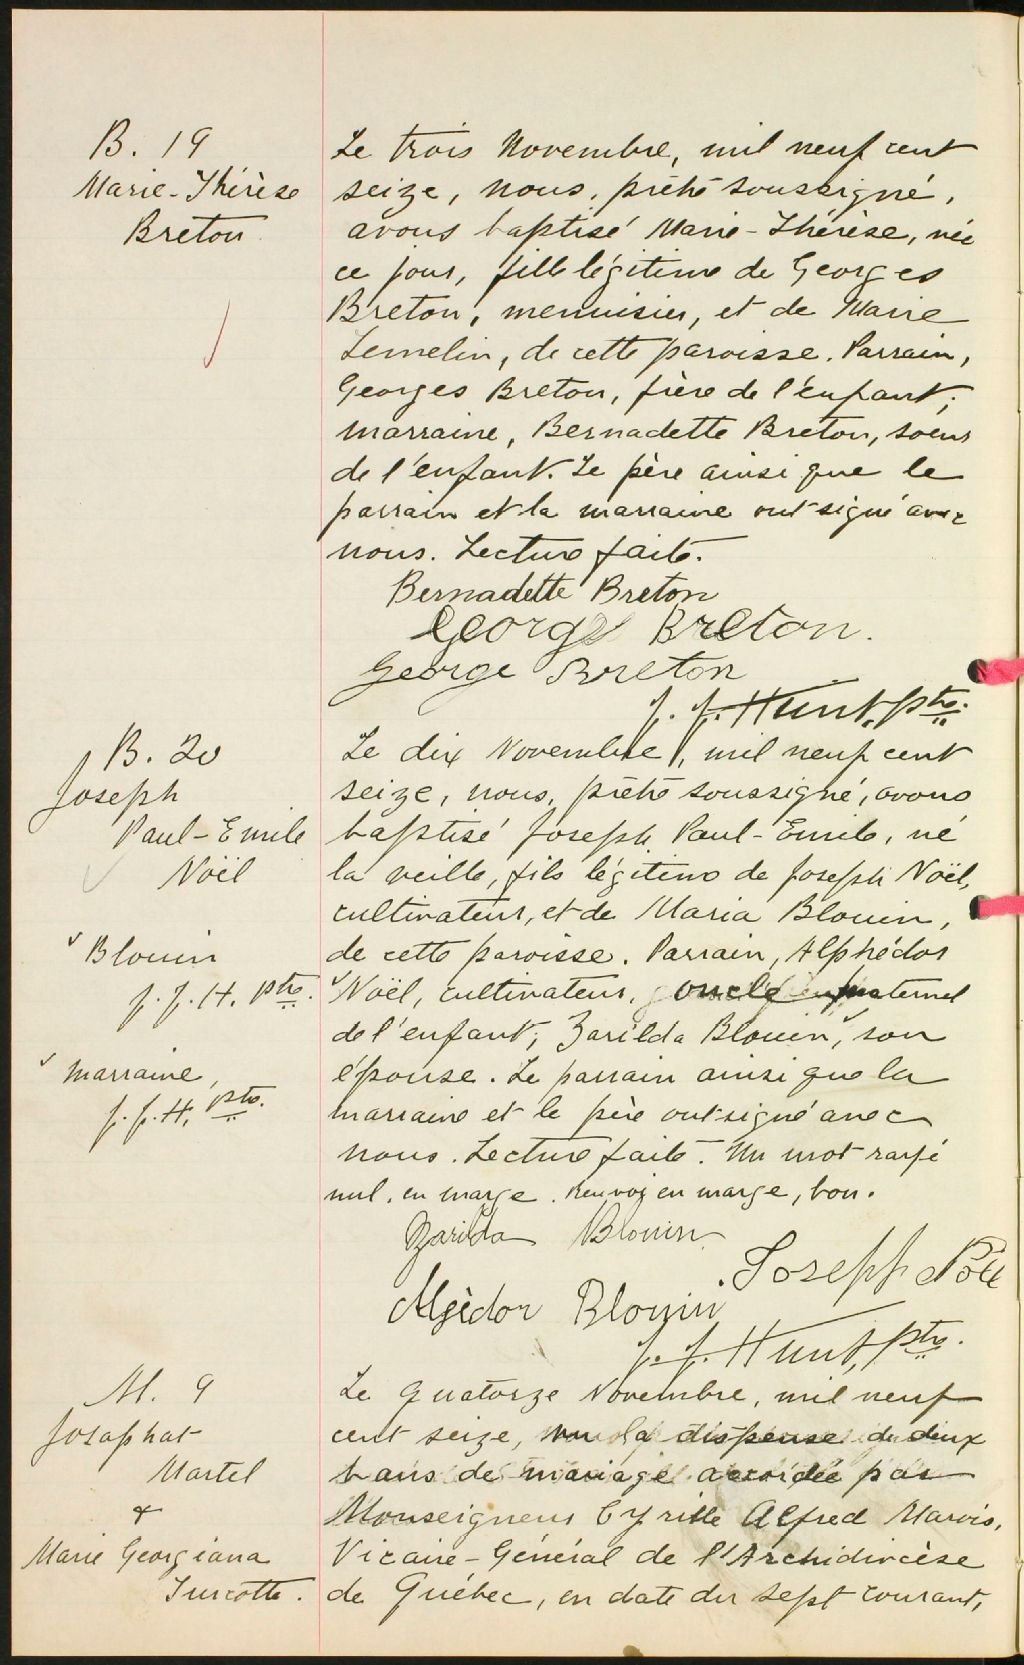 B. 19
Marie-Thérèse
Breton
Le trois Novembre, mil neuf cent
seize, nous, prêtre soussigné,
avons baptisé Marie-Thérèse, née
ce jour, fille légitime de Georges
Breton, menuisier, et de Marie
Lemelin, de cette paroisse. Parrain,
Georges Breton, frère de l'enfant;
marraine, Bernadette Breton, soeur
de l'enfant. Le père ainsi que le
parrain et la marraine ont signé avec
nous. Lecture faite.
Bernadette Breton
George Breton.
George Breton
J. J. Hunt, Ptre.
B. 20
Joseph
Paul-Emile
Noël
Blouin
J. J. H. Ptre.
marraine,
J. J. H. Ptre.
Le dix Novembre, mil neuf cent
seize, nous, prêtre soussigné, avons
baptisé Joseph Paul-Emile, né
la veille, fils légitime de Joseph Noël,
cultivateur, et de Maria Blouin,
de cette paroisse. Parrain, Alphédor
Noël, cultivateur, oncle maternel
de l'enfant; Zarilda Blouin, son
épouse. Le parrain ainsi que la
marraine et le père ont signé avec
nous. Lecture faite. Un mot rayé
nul, en marge. Renvoi en marge, bon.
Zarilda Blouin
Joseph Noël
Blouin
J. J. Hunt, Ptre.
M. 9
Josaphat
Martel
&
Marie Georgiana
Turcotte.
Le quatorze Novembre, mil neuf
cent seize, vu la dispense de deux
bans de mariage accordée par
Monseigneur Cyrille Alfred Marois,
Vicaire-Général de l'Archidiocèse
de Québec, en date du sept courant,